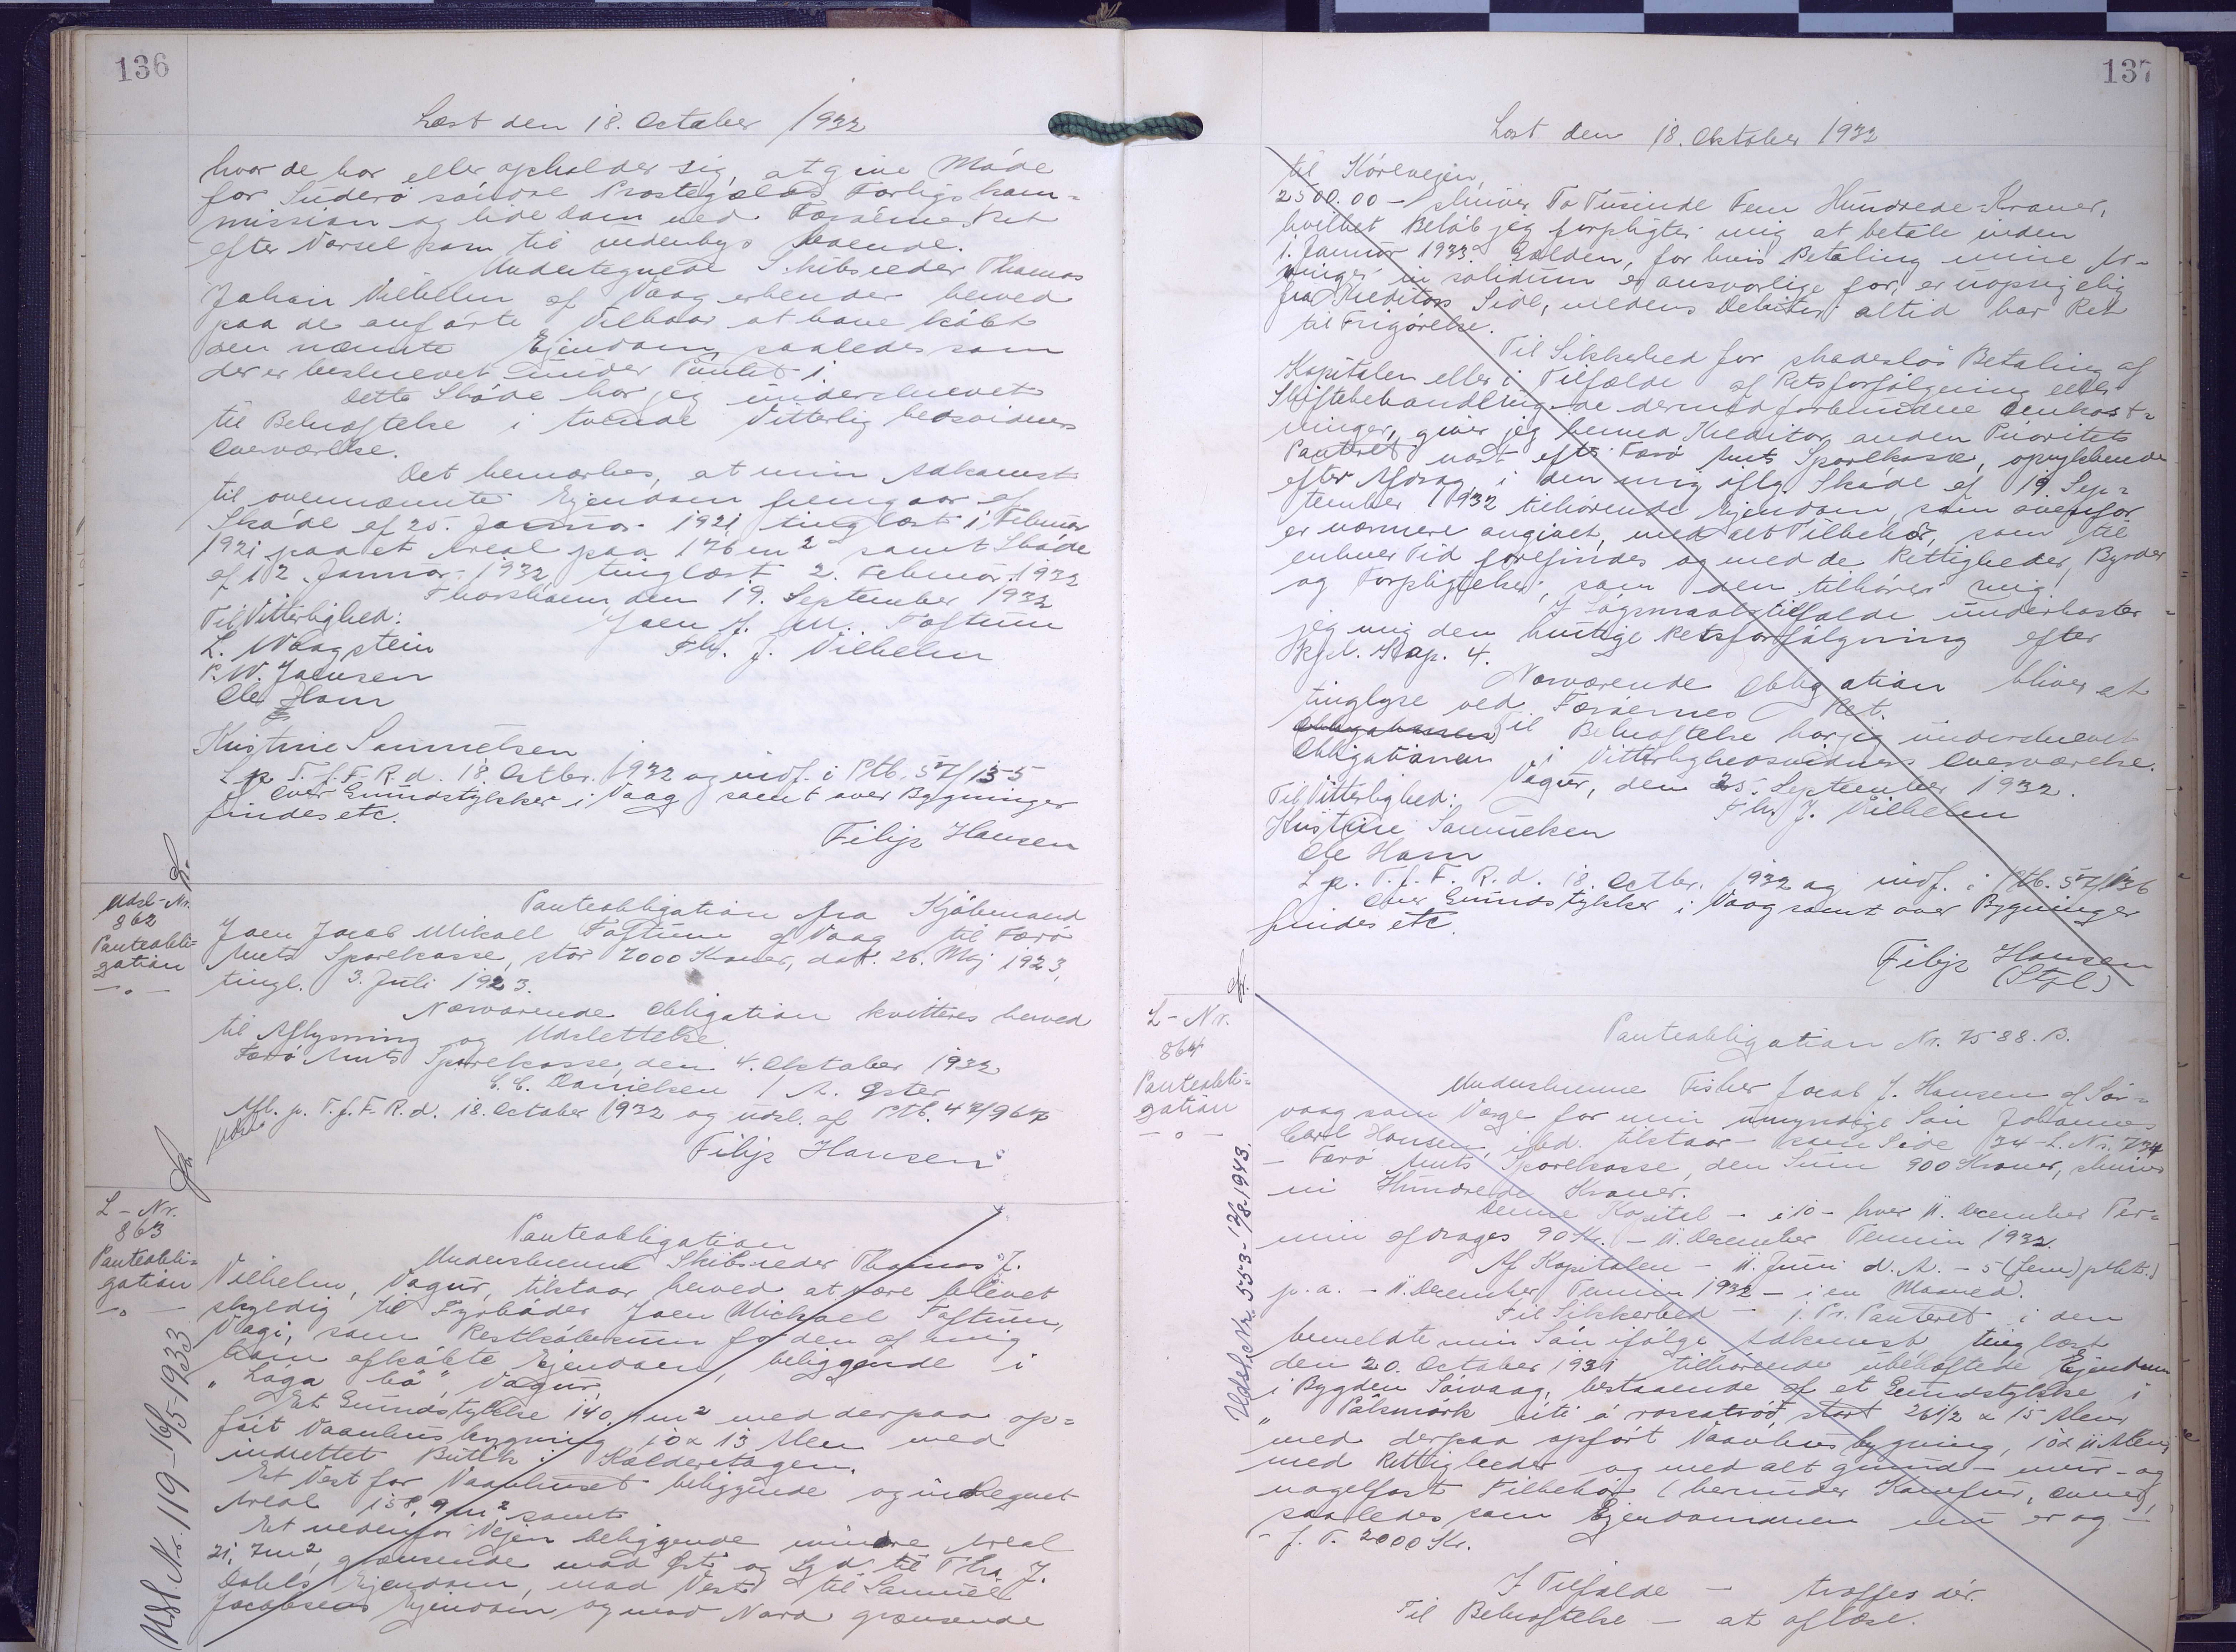 136
Læst den 18. October 1932
hvor de bor eller opholder sig, at give Møde
for Suderø søndre Præstegælds Forligskom-
mission og lide Dom ved Færøernes Ret
efter Varsel som til udenbys boende.
Undertegnede Skibsreder Thomas
Johan Vilhelm af Vaag erkender herved
paa de anførte Vilkaar at have købt
den nævnte Ejendom, saaledes som
der er beskrevet under Punkt 1.
Dette Skøde har jeg underskrevet
til Bekræftelse i tvende Vitterlighedsvidners
Overværelse.
Det bemærkes, at min Adkomst
til ovennævnte Ejendom fremgaar af
Skøde af 20. Januar 1921 tinglæst 1. Februar
1921 paa et Areal paa 176 m² samt Skøde
af 12. Januar 1932, tinglæst 2. Februar 1932
Thorshavn, den 19. September 1932
Til Vitterlighed: Joen J. M. Toftum
L. Waagstein Th. J. Vilhelm
P. W. Jacobsen
Ole Ham
Kristine Samuelsen
L. p. T. f. F. R. d. 18. Octbr. 1932 og indf. i Ptb. 57/135
Over Grundstykker i Vaag samt over Bygninger
findes etc.
Filip Hansen
Udsl-Nr.
862
Panteobli-
gation
Panteobligation fra Kjøbmand
Joen Jacob Mikael Toftum af Vaag til Færø
Amts Sparekasse, stor 7000 Kroner, dat. 26. Maj 1923,
tingl. 3. Juli 1923.
Nærværende Obligation kvitteres herved
til Aflysning og Udslettelse.
Færø Amts Sparekasse, den 4. Oktober 1932
C. C. Danielsen / A. Øster
Afl. p. T. f. F. R. d. 18. October 1932 og udsl. af Ptb. 47/967
Filip Hansen
L - Nr.
863
Panteobli-
gation
Udsl. Nr. 119 - 16/5-1933
Panteobligation
Underskrevne Skibsreder Thomas J.
Vilhelm, Vagur, tilstaar herved at være blevet
skyldig til Fyrbøder Joen Michael Toftum,
Vagi, som Restkøbesum for den af mig
ham afkøbte Ejendom, beliggende i
"Låga bø", Vagur,
Et Grundstykke 140,1 m² med derpaa op-
ført Vaanhusbygning 10 x 13 Alen med
indrettet Butik i Kælderetagen.
Et Vest for Vaanhuset beliggende og indhegnet
Areal 158,9 m², samt
Et nedenfor Vejen beliggende mindre Areal
21,7 m², grænsende mod Øst og Syd til Tho. J.
Dahls Ejendom, mod Vest til Samuel
Jacobsens Ejendom og mod Nord grænsende
137
Læst den 18. Oktober 1932
til Kørevejen,
2500.00 - skriver To Tusinde Fem Hundrede Kroner,
hvilket Beløb jeg forpligter mig at betale inden
1. Januar 1933. Gælden, for hvis Betaling mine Ar-
vinger in solidum er ansvarlige for, er uopsigelig
fra Kreditors Side, medens Debitor altid har Ret
til Frigørelse.
Til Sikkerhed for skadesløs Betaling af
Kapitalen eller i Tilfælde af Retsforfølgning eller
Skiftebehandling de dermed forbundne Omkost-
ninger, giver jeg herved Kreditor anden Prioritets
Panteret næst efter Færø Amts Sparekasse, oprykkende
efter Afdrag i den mig iflg. Skøde af 19. Sep-
tember 1932 tilhørende Ejendom, som ovenfor
er nærmere angivet, med alt Tilbehør, som til
enhver Tid forefindes og med de Rettigheder, Byrder
og Forpligtelser, som den tilhører mig.
I Søgsmaalstilfælde underkaster
jeg mig den hurtige Retsforfølgning efter
Rpl. Kap. 4.
Nærværende Obligation bliver at
tinglyse ved Færøernes Ret.
Obligationen Til Bekræftelse har jeg underskrevet
Obligationen i Vitterlighedsvidners Overværelse.
Vagur, den 25. September 1932.
Til Vitterlighed: Th. J. Vilhelm
Kristine Samuelsen
Ole Ham
L. p. T. f. F. R. d. 18. Octbr. 1932 og indf. i Ptb. 57/136
Over Grundstykker i Vaag samt over Bygninger
findes etc.
Filip Hansen
(Stpl)
L - Nr.
864
Panteobli-
gation
Udsl. Nr. 553 - 17/8-1943.
Panteobligation Nr. 7588. B.
Underskrevne Fisker Jacob J. Hansen af Sør-
vaag som Værge for min umyndige Søn Johannes
Carl Hansen, ibd. tilstaar - som Side 34 - L. Nr. 734
- Færø Amts Sparekasse, den Sum 900 Kroner, skriver
ni Hundrede Kroner.
Denne Kapital - i 10 - hver 11. December Ter-
min afdrages 90 Kr. - 11. December Termin 1932.
Af Kapitalen - 11. Juni d. A. - 5 (fem) pCt.
p. a. - 11. December Termin 1932 - i en Maaned.
Til Sikkerhed - 1. Pr. Panteret i den
bemeldte min Søn ifølge Adkomst tinglæst
den 20. October 1931 tilhørende ubehæftede Ejendom
i Bygden Sørvaag, bestaaende af et Grundstykke i
" Pálsmørk úti á stort 26 1/2 x 15 Alen
med derpaa opført Vaanhusbygning, 10 x 11 Alen,
med Rettigheder og med alt grund- mur- og
nagelfast Tilbehør (herunder Komfur, Ovne),
saaledes som Ejendommen nu er og -
- f. T. 2000 Kr.
I Tilfælde - træffes dér.
Til Bekræftelse - at aflæse.